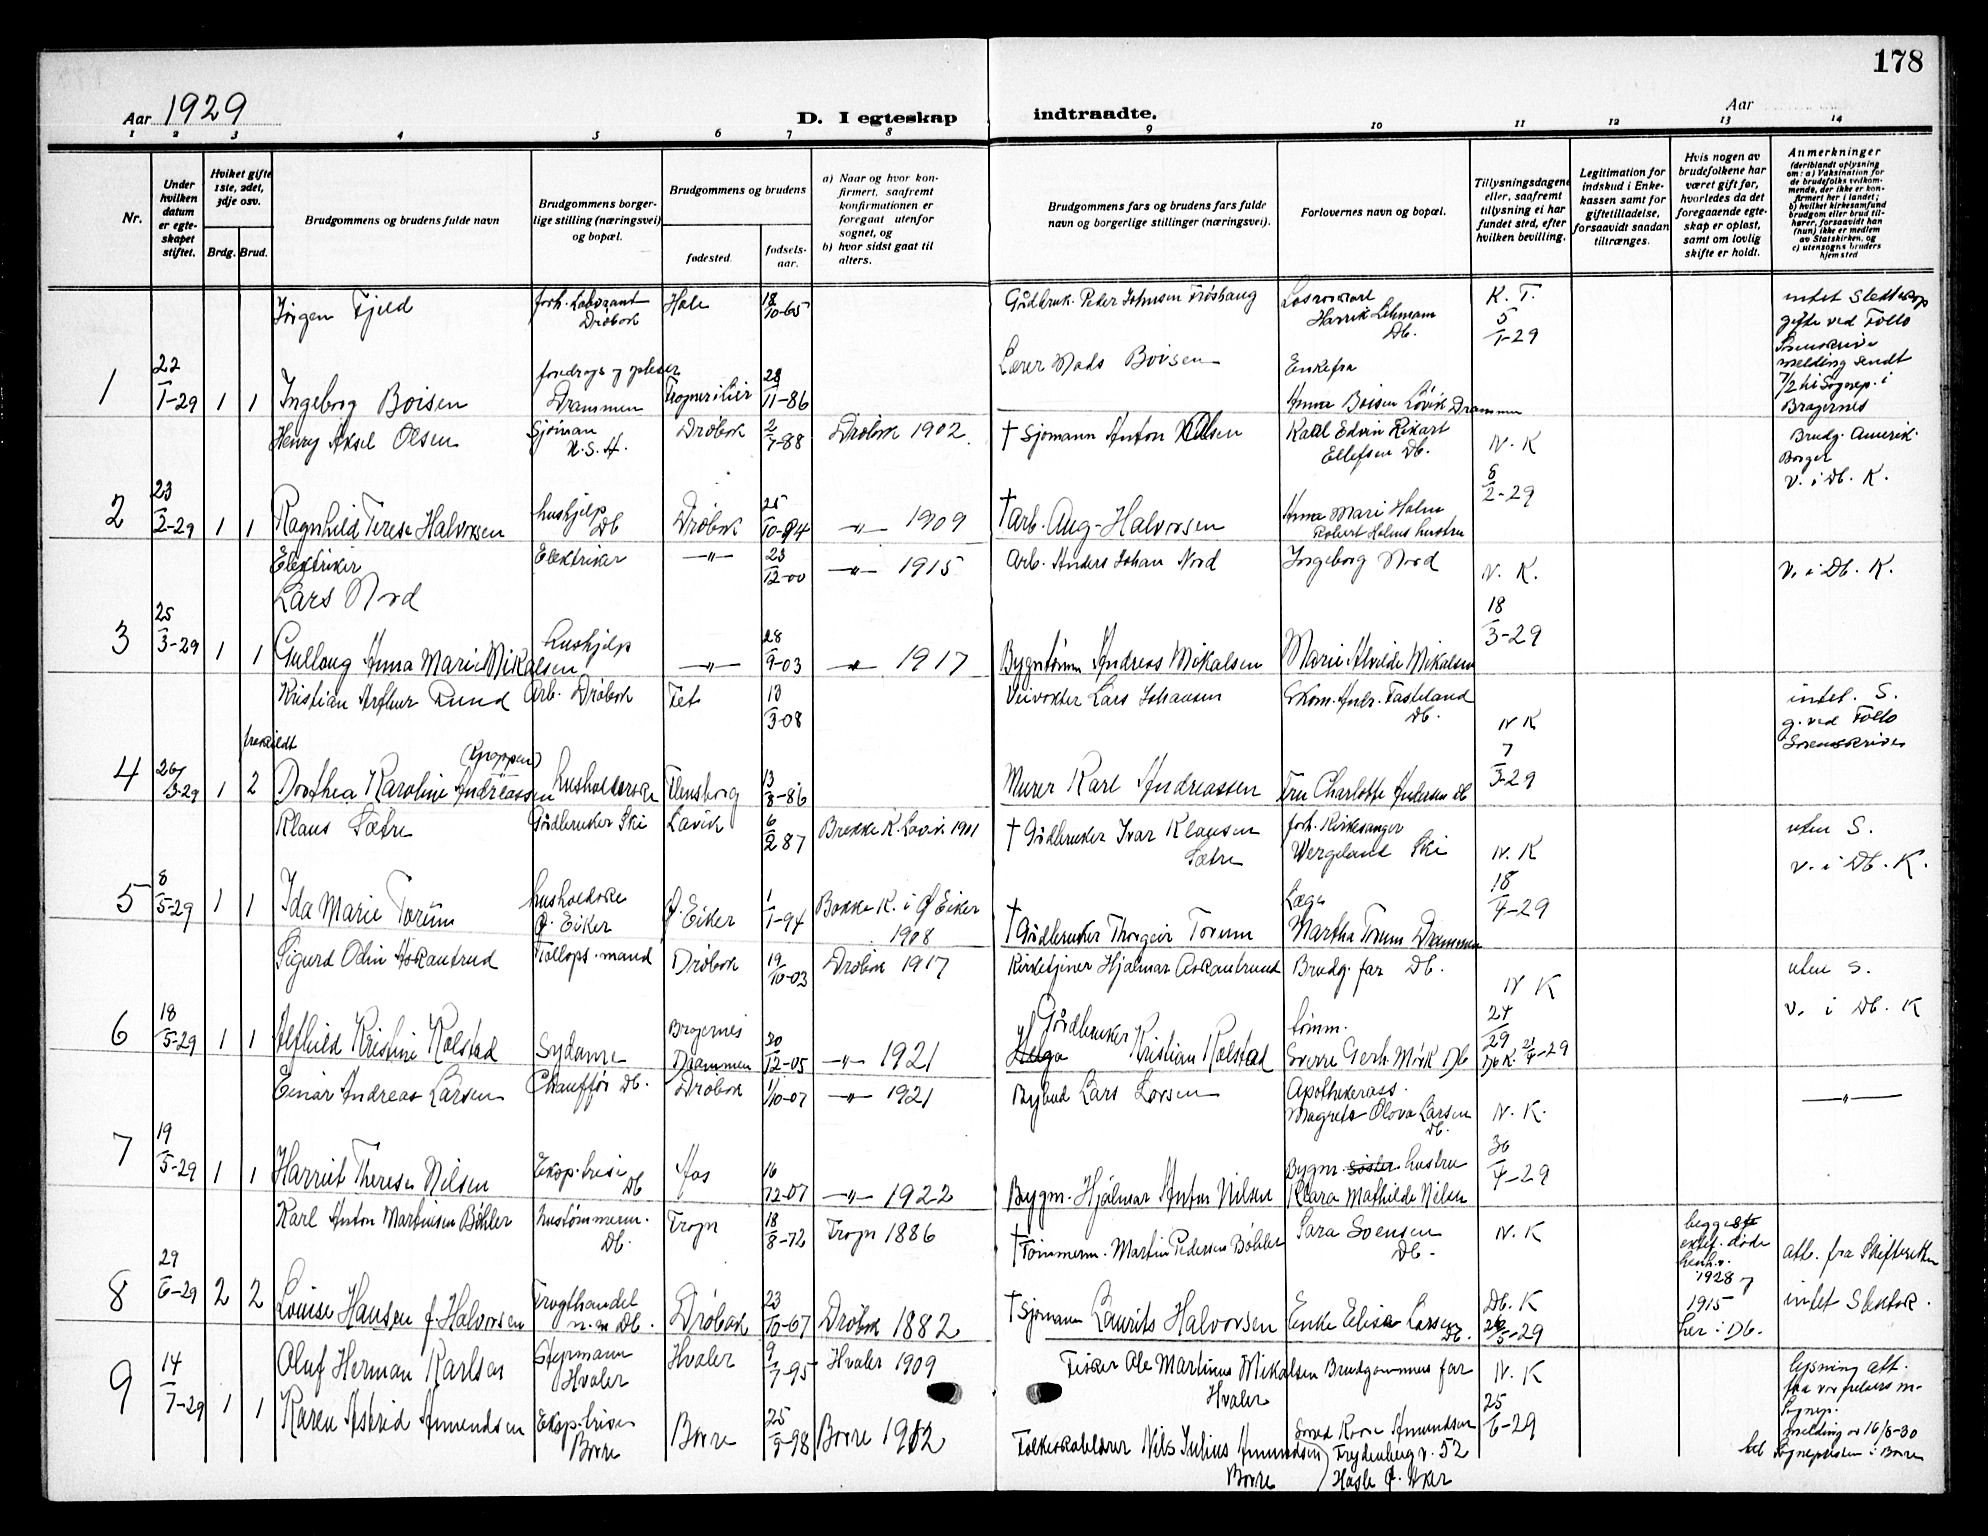 178
Aar 1929
D. I egteskap indtraadte.
Aar
1 2 3 4 5 6 7 8 9 10 11 12 13 14
Nr.
Under hvilken datum er egteskapet stiftet.
Hviket gifte 1ste, 2det, 3dje osv.
Brdg. Brud.
Brudgommens og brudens fulde navn
Brudgommens borgerlige stilling (næringsvei) og bopæl.
Brudgommens og brudens
fødested.
fødselsaar.
a) Naar og hvor konfirmert, saafremt konfirmationen er foregaat utenfor sognet, og
b) hvor sidst gaat til alters.
Brudgommens fars og brudens fars fulde navn og borgerlige stillinger (næringsvei).
Forlovernes navn og bopæl.
Tillysningsdagene eller, saafremt tillysning ei har fundet sted, efter hvilken bevilling.
Legitimation for indskud i Enkekassen samt for giftetilladelse, forsaavidt saadan tiltrænges.
Hvis nogen av brudefolkene har været gift før, hvorledes da det foregaaende egteskap er opløst, samt om lovlig skifte er holdt.
Anmerkninger
(deriblandt oplysning om: a) Vaksination for de brudefolks vedkommende, der ikke er konfirmert her i landet; b) hvilket kirkesamfund brudgom eller brud tilhører, forsaavidt han (hun) ikke er medlem av Statskirken, og c) utensogns bruders hjemsted
Jørgen Fjeld forh. Laborant Drøbak Hole 18/10-65 Gårdbruk. Peter Johnsen Frøshaug Henrik Lehmann Db. K. T. 5/1-29 intet Slektskap gifte ved Follo Sorenskriver melding sendt 7/2 til Sognep. i Bragernes
1 22/1-29 1 1 Ingeborg Boisen Drammen 28/11-86 Lærer Mads Boisen Enkefru Anna Boisen Løvik Drammen
Henry Aksel Olsen Sjømann U.S.A. Drøbak 2/7-88 Drøbak 1902. † Sjømann Anton Olsen Karl Edvin Rikart Ellefsen Db. N. K 8/2-29 Brudg. Amerik. Borger v. i Db. K.
2 23/2-29 1 1 Ragnhild Terese Halvorsen hushjelp Db Drøbak 25/10-94 —"— 1909 † Arb. Aug. Halvorsen Anna Mari Holm Robert Holms hustru
Elektriker Lars Nord Elektriker —"— 23/12-00 —"— 1915 Arb. Anders Johan Nord Ingeborg Nord N. K. 18/3-29 V. i Db. K.
3 25/3-29 1 1 Gullaug Anna Marie Mikalsen Hushjelp —"— 28/9-03 —"— 1917 Bygntømm Andreas Mikalsen Marie Alvilde Mikalsen
Kristian Arthur Rund Arb. Drøbak Fet 13/3-08 Veivokter Lars Johansen N K 7/3-29 intet. S. g. ved Follo Sorenskriver
4 26/3-29 1 2 fraskildt Dorthea Karoline Andreassen husholderske Flensborg 13/8-86 Murer Karl Andreassen Fru Charlotte Andersen Db
Klaus Sætre Gårdbruker Ski Lavik 6/2 87 Brekke K. Lavik 1901 † Gårdbruker Ivar Klausen Sætre forh. Kirkesanger Wergeland Ski N. K 18/4-29 uten S. v. i Db. K.
5 8/5-29 1 1 Ida Marie Torum husholderske Ø. Eiker Ø. Eiker 1/1-94 Bakke K. i Ø Eiker 1908 † Gårdbruker Thorgeir Torum Læge Martha Torum Drammen
Sigurd Odin Askautrud Drøbak 19/10-03 Drøbak 1917 Kirketjener Hjalmar Askautrud Brudg. far Db. N K 24/29 Db K. 21/4-29 uten S. v. i Db. K
6 18/5-29 1 1 Alfhild Kristine Kolstad Sydame Bragernes Drammen 30/12-05 —"— 1921 Helga Gårdbruker Kristian Kolstad tømm. Sverre Gerh. Mørk Db
Einar Andreas Larsen Chauffør Db. Drøbak 1/10-07 —"— 1921 Bybud Lars Larsen Apothekerass. Magreta Olova Larsen Db. N. K. 30/4-29 —"—
7 19/5-29 1 1 Harriet Therese Nilsen Eksp. trise Db Aas 16/12-07 —"— 1922 Bygm. Hjalmar Anton Nilsen Bygm. Søster hustru Klara Mathilde Nilsen
Karl Anton Martinisen Bøhler hustømmerm. Db. Frogn 18/8-72 Frogn 1886 † Tømmerm. Martin Pedersen Bøhler Sara Svensen Db. N. K Db. K 26/5-29 begge ektef. døde henh.v. 1928 7 1915 her i Db. att. fra Skifteretten intet Slektsk.
8 29/6-29 2 2 Louise Hansen f. Halvorsen Frugthandel Db. Drøbak 23/10-67 Drøbak 1882 † Sjømann Laurits Halvorsen Enke Elise Larsen Db.
Oluf Herman Karlsen Styrmann Hvaler Hvaler 9/7-95 Hvaler 1909 Fisker Ole Martinus Mikalsen Hvaler Brudgommens far N. K 25/6-29 lysning att. Sognep. melding av 16/8-30 til Sognepresten i Borre
9 14/7-29 1 1 Karen Astrid Amundsen Eksp. trise Borre Borre 25/9-98 Borre 1912 Folkeskolelærer Nils Julius Amundsen Borre Amundsen Frydenberg v. 52 Hasle Ø. Aker